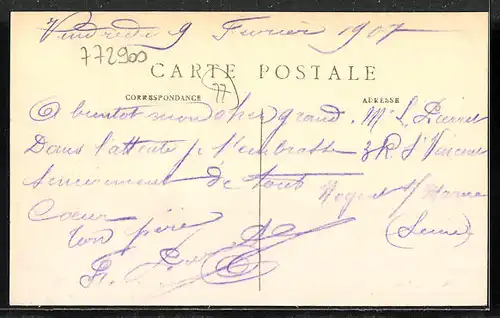 Vendredi 9 Fevrier 1907
772900
CARTE POSTALE
77
CORRESPONDANCE
ADRESSE
A bientot mon cher grand.
Dans l'attente je t'embrasse
sincerement de tout
Coeur
ton père
Mr L.
3 R. St Vincent
Nogent s/ Marne
(Seine)